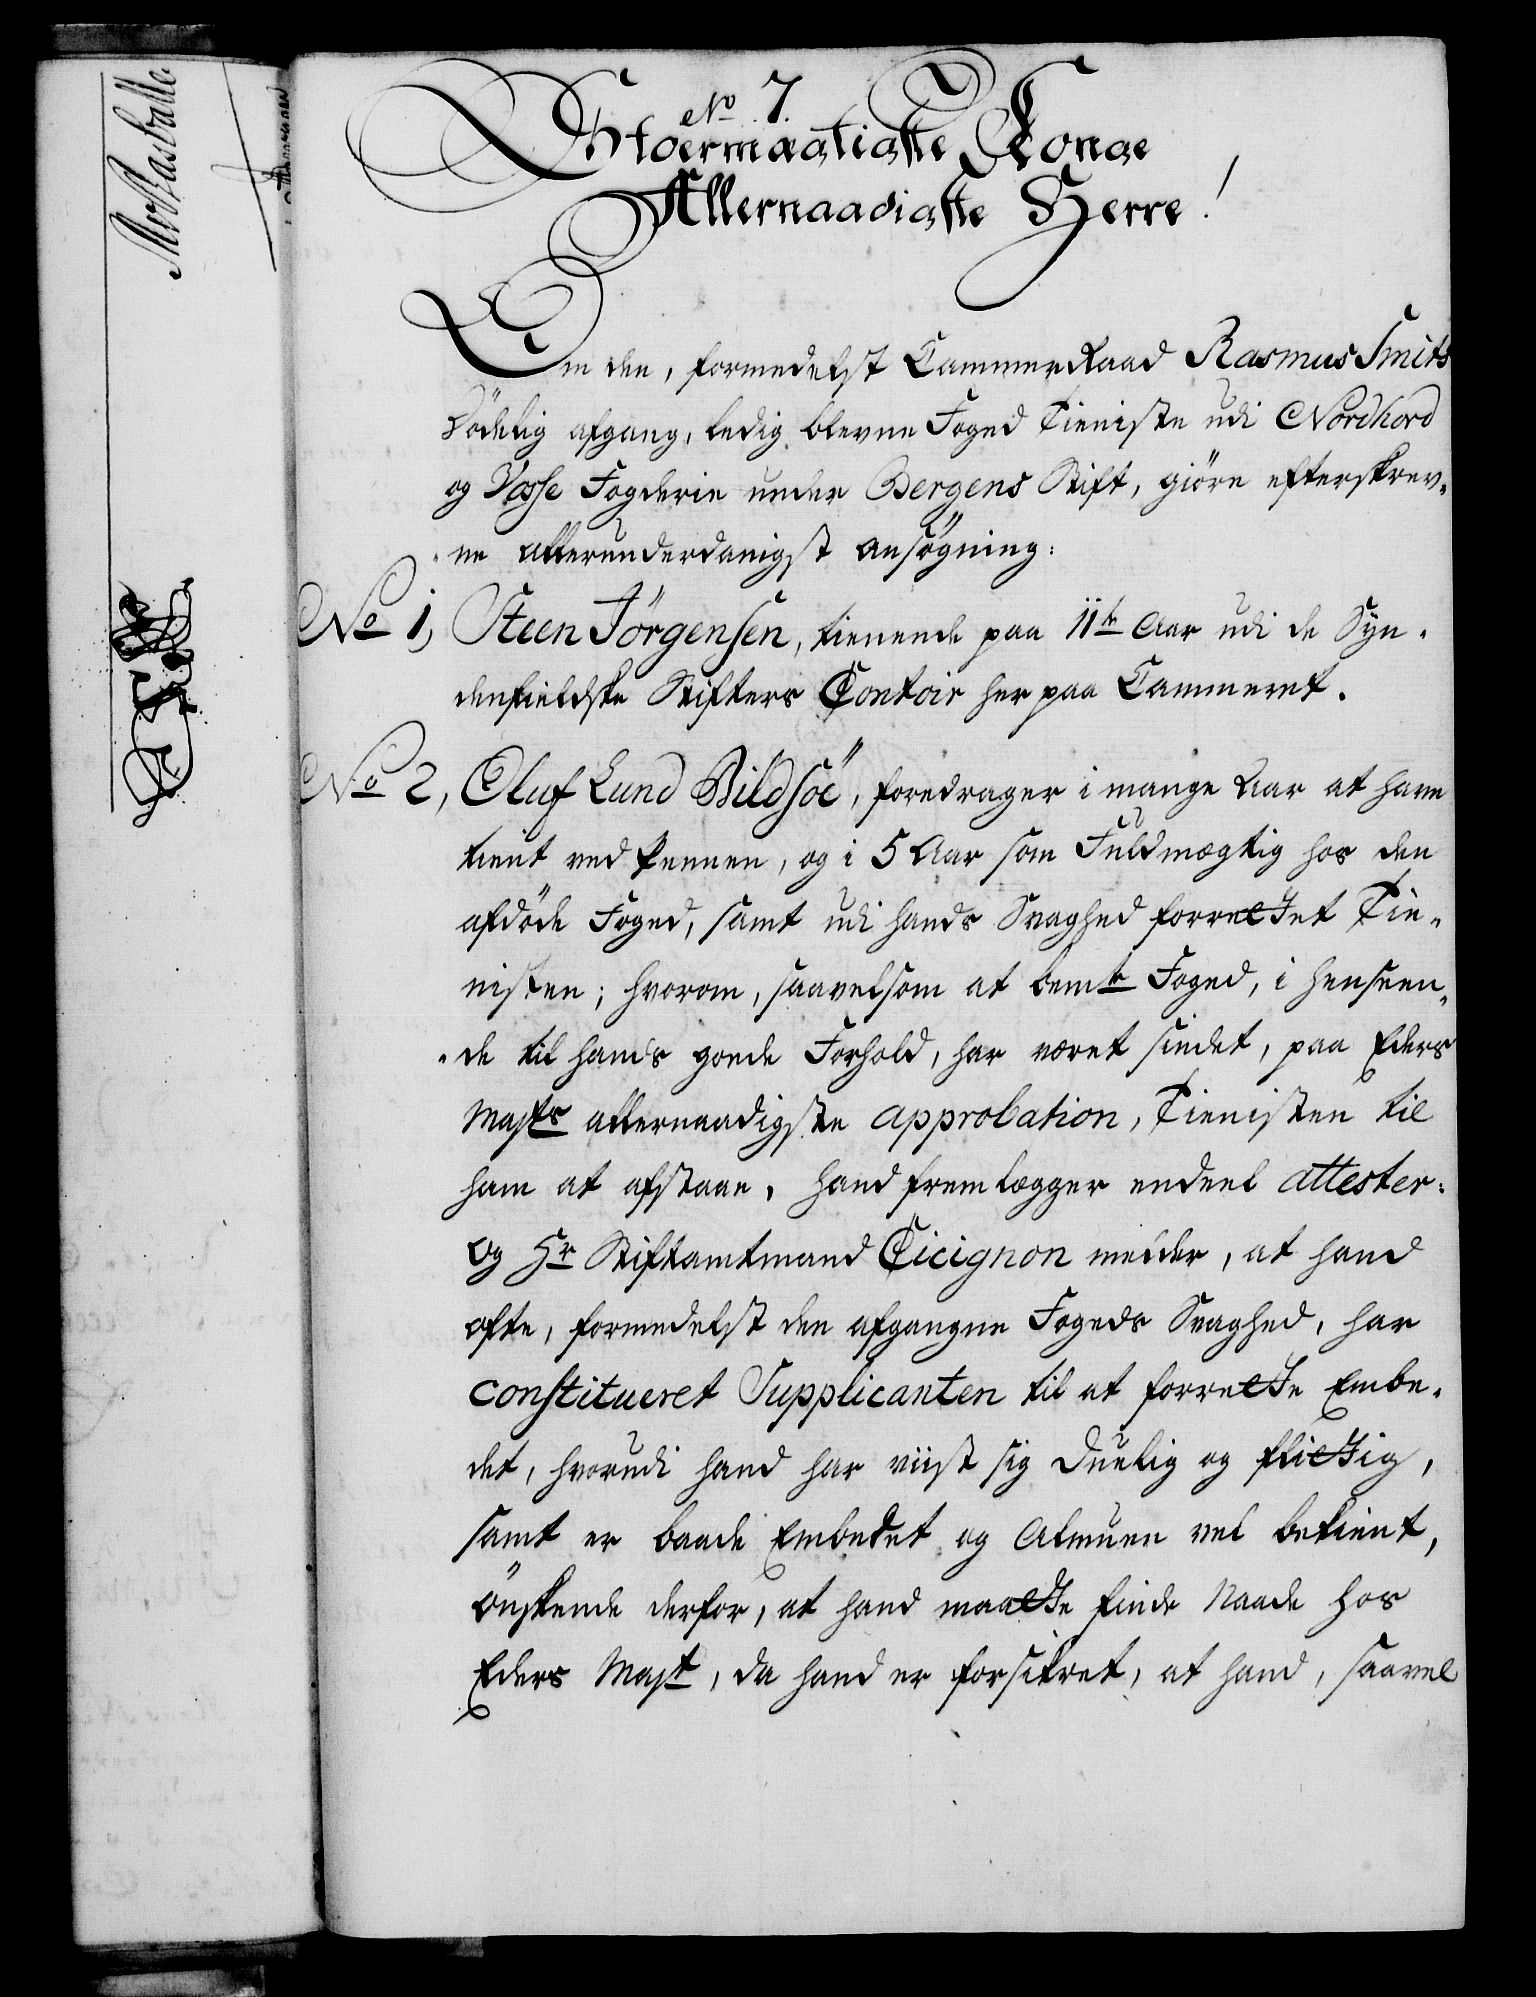 No 7.
Stoermægtigste Konge
Allernaadigste Herre!
Om den, formedelst CammerRaad Rasmus Smits
Dödelig afgang, ledig blevne Foged Tieniste udi Nordhord
og Vosse Fogderie under Bergens Stift, giöre efterskrev-
-ne allerunderdanigst ansögning:
No 1, Steen Jörgensen, tienende paa 11te Aar udi de Syn-
denfieldske Stifters Contoir her paa Cammeret.
No 2, Oluf Lund Bildsöe, foredrager i mange Aar at have
tient ved Pennen, og i 5 Aar som Fuldmægtig hos den
afdöde Foged, samt udi hands Svaghed forrettet Tie-
nisten; hvorom, saavelsom at bemte Foged, i henseen-
-de til hands goede Forhold, har været sindet, paa Eders
Mayts allernaadigste approbation, Tienisten til
ham at afstaae, hand fremlægger endeel attester:
Og Hr Stiftamtmand Cicignon melder, at hand
ofte, formedelst den afgangne Fogeds Svaghed, har
constitueret Supplicanten til at forrette Embe-
det, hvorudi hand har viist sig Duelig og flittig,
samt er baade Embedet og Almuen vel bekient,
önskende derfor, at hand maatte finde Naade hos
Eders Mayt, da hand er forsikret, at hand, saavel